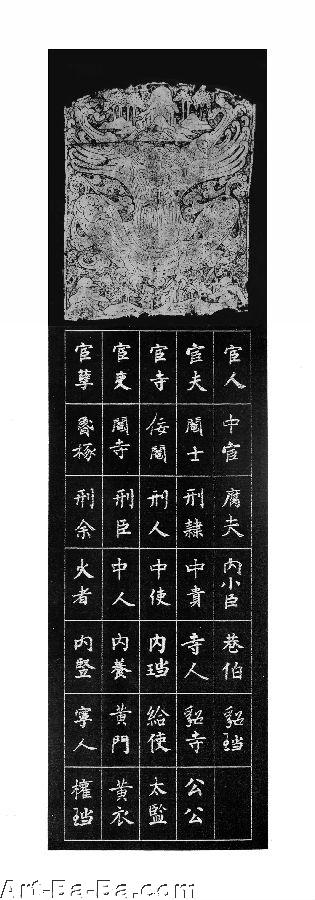 宦人 中官 腐夫 内小臣 巷伯 貂珰
宦夫 阉士 刑隸 中貴 寺人 貂寺 公公
宦寺 佞閹 刑人 中使 内珰 給使 太監
宦吏 閹寺 刑臣 中人 内養 黃門 黃衣
宦孽 昏椓 刑余 火者 内竪 寧人 權珰
Art-Ba-Ba.com